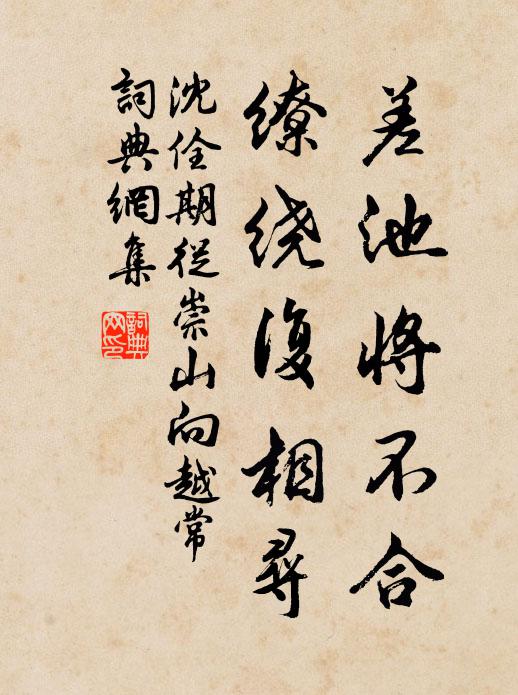 差池将不合
繚绕復相尋
沈佺期從崇山向越常
詞典網集
詞典网印